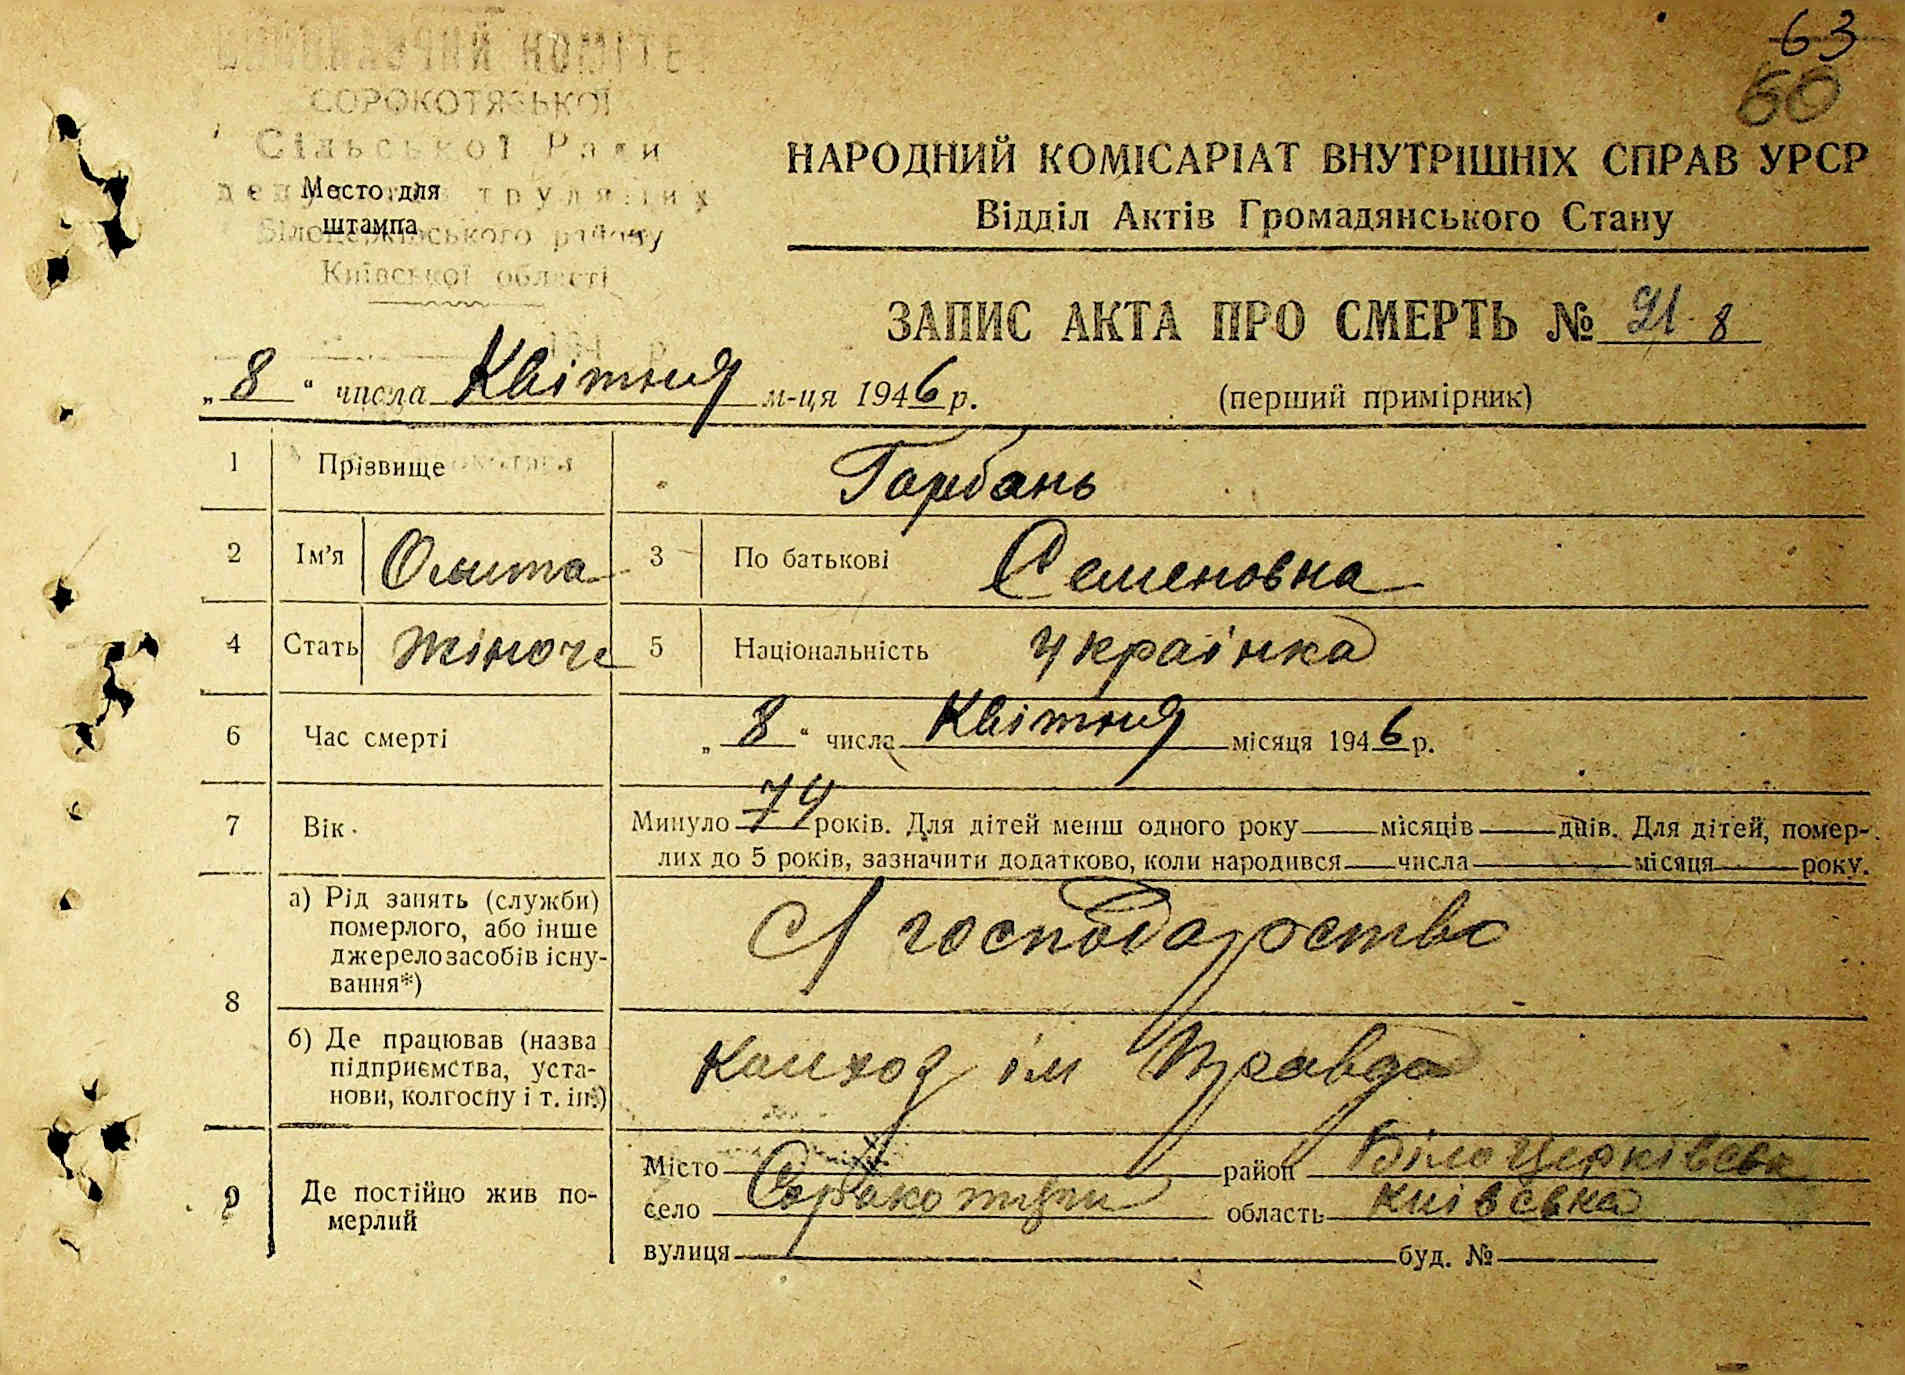 63
60
ВИКОНАВЧИЙ КОМІТЕ
СОРОКОТЯЗЬКОЇ
Сільської Ради
деп трудящих
Місто для
штампа
Білоцерківського району
Київської області
194 р.
НАРОДНИЙ КОМІСАРІАТ ВНУТРІШНІХ СПРАВ УРСР
Відділ Актів Громадянського Стану
ЗАПИС АКТА ПРО СМЕРТЬ № 8
„8“ числа Квітня м-ця 1946 р.
(перший примірник)
1 Прізвище Горбань
2 Ім'я 3 По батькові Семеновна
4 Стать жіноче 5 Національність українка
6 Час смерті „8“ числа Квітня місяця 1946 р.
7 Вік Минуло 74 років. Для дітей менш одного року місяців днів. Для дітей, помер-
лих до 5 років, зазначити додатково, коли народився числа місяця року.
8 а) Рід занять (служби)
померлого, або інше
джерело засобів існу-
вання*)
С/господарство
б) Де працював (назва
підприємства, уста-
нови, колгоспу і т. ін.)
Колхоз ім Правда
9 Де постійно жив по-
мерлий
Місто район Білоцерківськ
село Сорокотяги область київська
вулиця буд. №